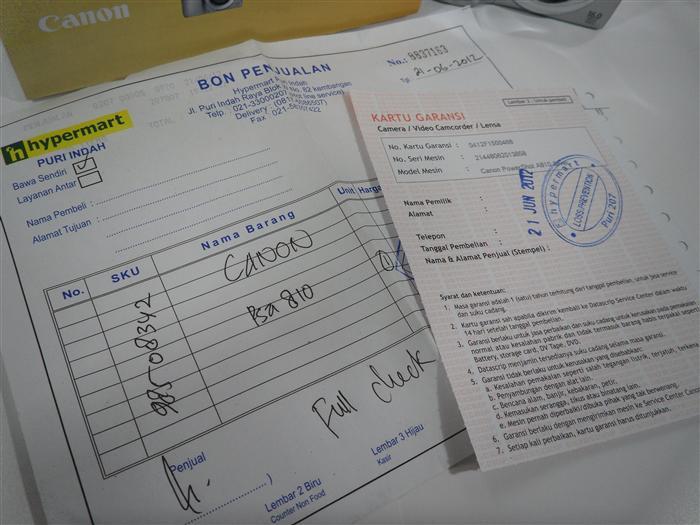 Canon
BON PENJUALAN
No.: 8837163
Tgl 21-06-2012
Hypermart Puri Indah
Jl. Puri Indah Raya Blok No. 82 kembangan
Telp. 021-33000207
Delivery
Fax 021-
hypermart
PURI INDAH
Bawa Sendiri
Layanan Antar
Nama Pembeli :
Alamat Tujuan :
No. SKU Nama Barang Unit Harga
CANON
Psa 810
Full check
Penjual
Lembar 2 Biru
Counter Non Food
Lembar 3 Hijau
Kasir
KARTU GARANSI
Camera / Video Camcorder / Lensa
No. Kartu Garansi : 0412F1500468
No. Seri Mesin : 21448062012808
Model Mesin : Canon PowerShot A810
Nama Pemilik :
Alamat
Telepon :
Tanggal Pembelian :
Nama & Alamat Penjual (Stempel) :
21 JUN 2012
hypermart
LOSS PREVENTION
Puri 207
Syarat dan ketentuan:
1. Masa garansi adalah 1 (satu) tahun terhitung dari tanggal pembelian, untuk jasa service
dan suku cadang.
2. Kartu garansi sah apabila dikirim kembali ke Datascrip Service Center dalam waktu
14 hari setelah tanggal pembelian.
3. Garansi berlaku untuk jasa perbaikan dan suku cadang untuk kerusakan pada pemakaian
normal, atau kesalahan pabrik dan tidak termasuk barang habis terpakai seperti
Battery, storage card, DV Tape, DVD.
4. Datascrip menjamin tersedianya suku cadang selama masa garansi.
5. Garansi tidak berlaku untuk kerusakan yang disebabkan:
a. Kesalahan pemakaian seperti salah tegangan listrik, terjatuh, terkena
b. Penyambungan dengan alat lain.
c. Bencana alam, banjir, kebakaran, petir.
d. Kemasukan serangga, tikus atau binatang lain.
e. Mesin pernah diperbaiki/dibuka pihak yang tak berwenang.
6. Garansi berlaku dengan mengirimkan mesin ke Service Center
7. Setiap kali perbaikan, kartu garansi harus ditunjukkan.